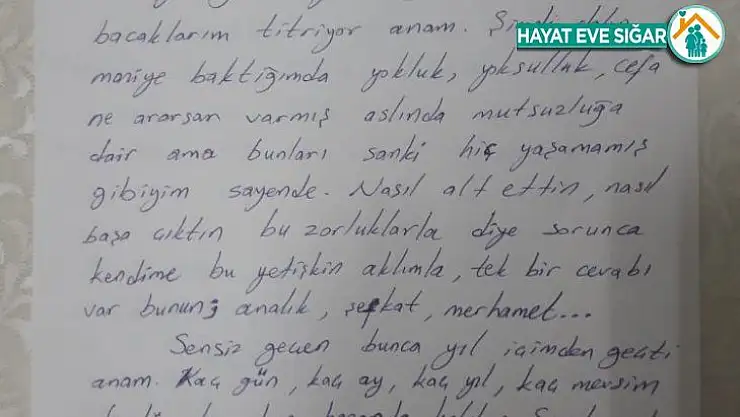 HAYAT EVE SIĞAR
bacaklarım titriyor anam. Şimdi
maziye baktığımda yokluk, yoksulluk, cefa
ne ararsan varmış aslında mutsuzluğa
dair ama bunları sanki hiç yaşamamış
gibiyim sayende. Nasıl alt ettin, nasıl
başa çıktın bu zorluklarla diye sorunca
kendime bu yetişkin aklımla, tek bir cevabı
var bunun; analık, şefkat, merhamet...
Sensiz geçen bunca yıl içimden geçti
anam. Kaç gün, kaç ay, kaç yıl, kaç mevsim